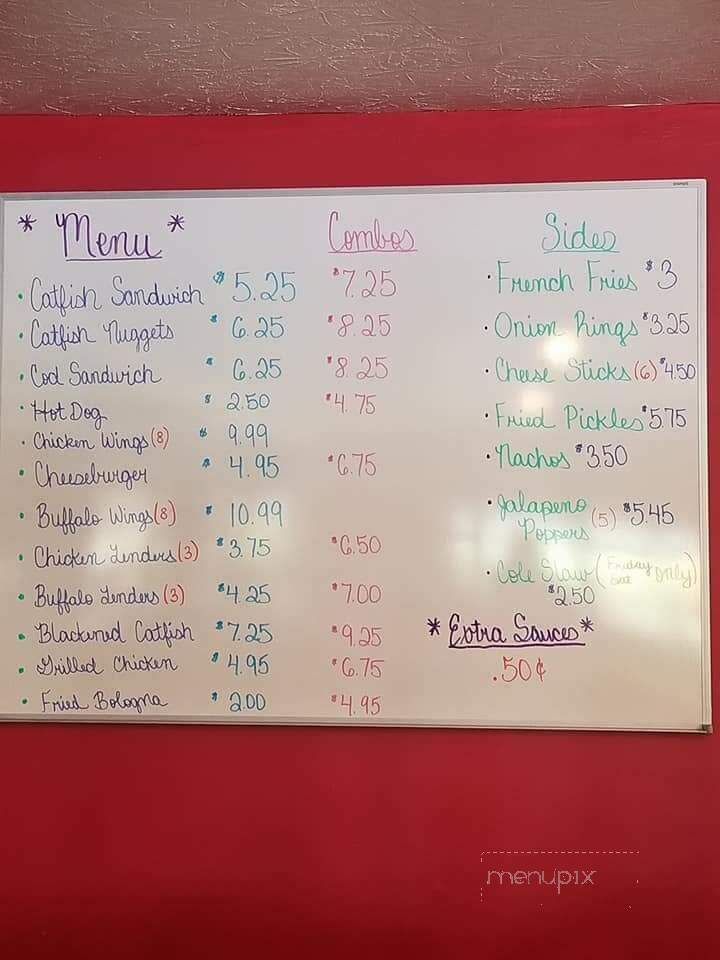 * Menu *
Combos
Sides
• Catfish Sandwich $5.25 $7.25
• Catfish Nuggets $6.25 $8.25
• Cod Sandwich $6.25 $8.25
• Hot Dog $2.50 $4.75
• Chicken Wings (8) $9.99
• Cheeseburger $4.95 $6.75
• Buffalo Wings (8) $10.99
• Chicken Tenders (3) $3.75 $6.50
• Buffalo Tenders (3) $4.25 $7.00
• Blackened Catfish $7.25 $9.25
• Grilled Chicken $4.95 $6.75
• Fried Bologna $2.00 $4.95
• French Fries $3
• Onion Rings $3.25
• Cheese Sticks (6) $4.50
• Fried Pickles $5.75
• Nachos $3.50
• Jalapeno
Poppers (5) $5.45
• Cole Slaw (Friday
Sat only)
$2.50
* Extra Sauces *
.50¢
menupix